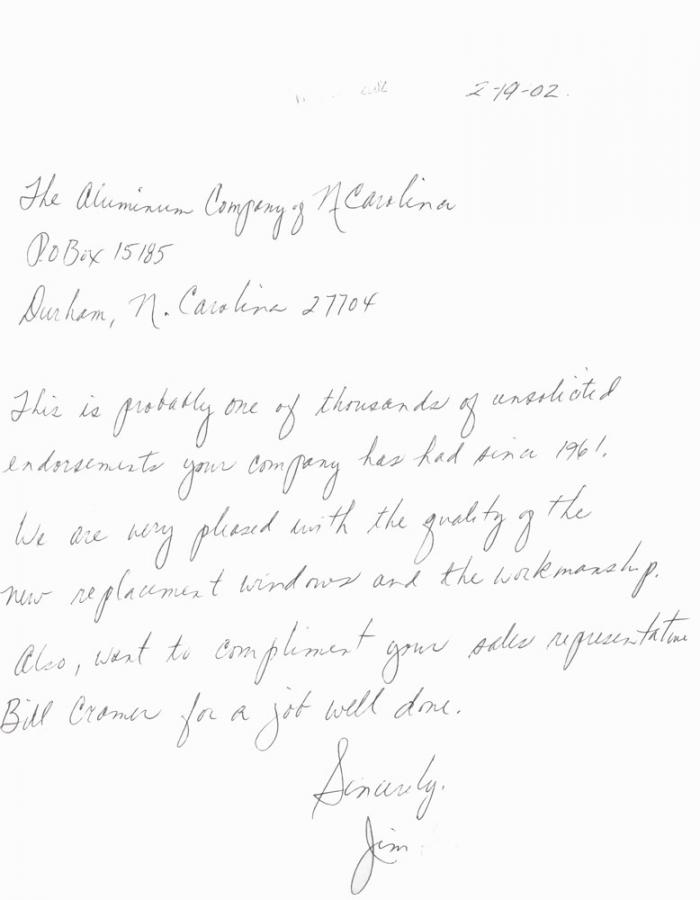 2-19-02.
The Aluminum Company of N Carolina
P.O Box 15185
Durham, N. Carolina 27704
This is probably one of thousands of unsolicited
endorsements your company has had since 1961.
We are very pleased with the quality of the
new replacement windows and the workmanship.
Also, want to compliment your sales representative
Bill Cramer for a job well done.
Sincerely.
Jim